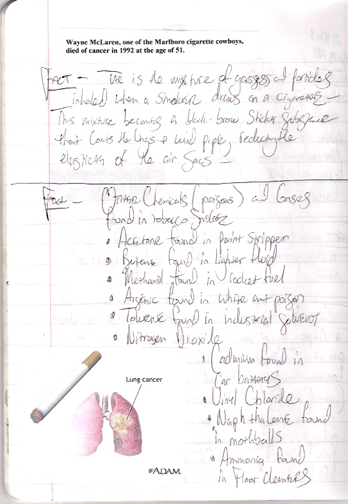 Wayne McLaren, one of the Marlboro cigarette cowboys,
died of cancer in 1992 at the age of 51.
FACT - TAR is the mixture of gasses and particles
inhaled when a Smoker draws on a cigarette -
This mixture becoming a black-brow Sticky Substance
that Coats the lungs + wind pipe, reducing the
elasticity of the air Sacs -
Fact - Other Chemicals (poisons) and Gases
found in tobacco Smoke
• Acetone found in Paint Stripper
• Butane found in lighter fluid
• Methanol found in rocket fuel
• Arsenic found in white ant poison
• Toluene found in industrial Solvent
• Nitrogen Dioxide
• Cadmium found in
Car batteries
• Vinyl Chloride
• Naphthalene found
in mothballs
• Ammonia found
in Floor Cleaners
Lung cancer
ADAM.